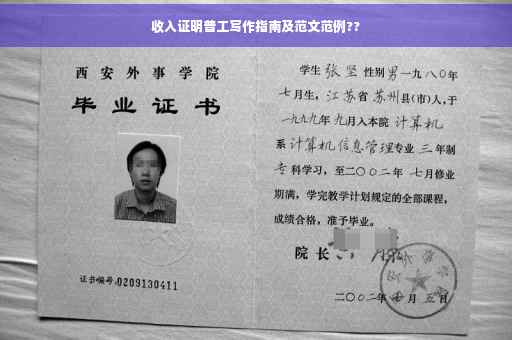 收入证明普工写作指南及范文范例??
西安外事学院
毕业证书
证书编号:0209130411
学生 张坚 性别 男 一九八〇年
七月生, 江苏省 苏州县(市)人,于
一九九九年 九月入本院 计算机
系 计算机信息管理专业 三 年制
专科学习,至二〇〇二年 七月修业
期满,学完教学计划规定的全部课程,
成绩合格,准予毕业。
院长
二〇〇二年 七月 五日